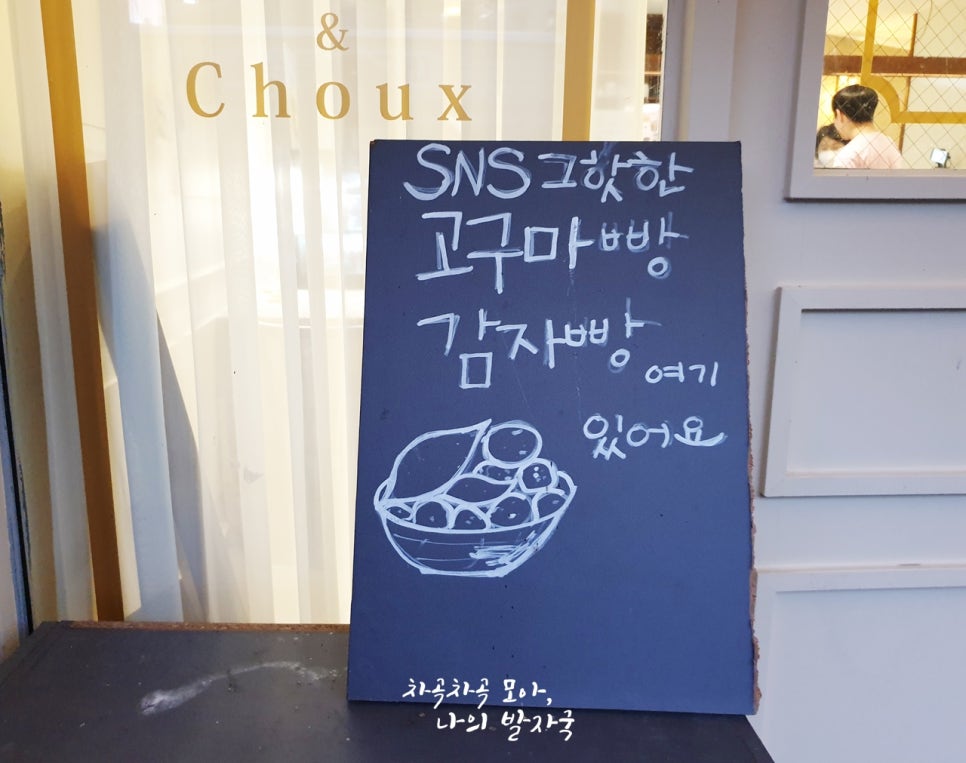 &
Choux
SNS 그핫한
고구마빵
감자빵
여기
있어요
차곡차곡 모아,
나의 발자국